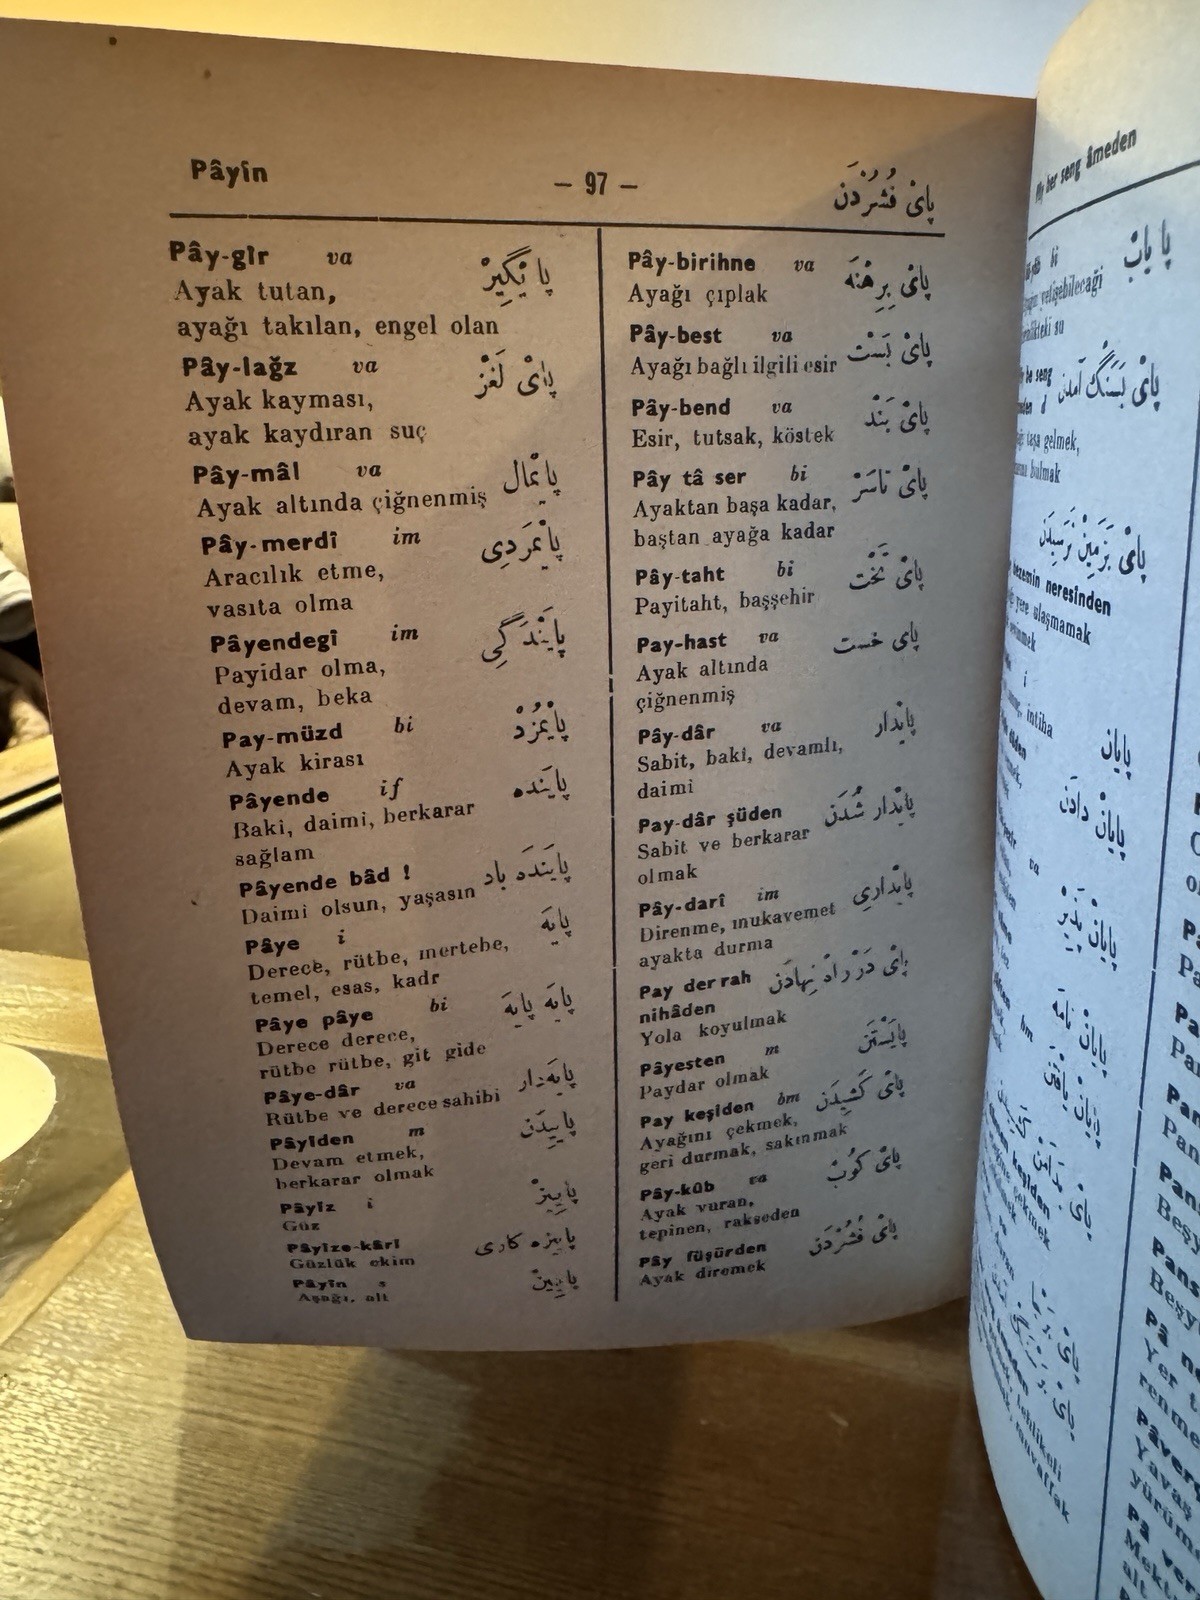 Pâyîn — 97 — پاىْ فُشُرْدَن
Pây-gîr va پایْگِیرْ
Ayak tutan,
ayağı takılan, engel olan
Pây-lağz va پاىْ لَغْزْ
Ayak kayması,
ayak kaydıran suç
Pây-mâl va پایْمال
Ayak altında çiğnenmiş
Pây-merdî im پایْمَرْدِی
Aracılık etme,
vasıta olma
Pâyendegî im پایَنْدَگِی
Payidar olma,
devam, beka
Pay-müzd bi پایْمُزْدْ
Ayak kirası
Pâyende if پایَنده
Baki, daimi, berkarar
sağlam
Pâyende bâd ! پایَنْدَه باد
Daimi olsun, yaşasın
Pâye i پایَه
Derece, rütbe, mertebe,
temel, esas, kadr
Pâye pâye bi پایَه پایَه
Derece derece,
rütbe rütbe, git gide
Pâye-dâr va پایَه‌دار
Rütbe ve derece sahibi
Pâyîden m پایِیدَن
Devam etmek,
berkarar olmak
Pâyîz i پایِیزْ
Güz
Pâyîze-kârî پاییزه کاری
Güzlük ekim
Pâyîn s پایِینْ
Aşağı, alt
Pây-birihne va پاىْ بِرِهْنَه
Ayağı çıplak
Pây-best va پاىْ بَسْت
Ayağı bağlı ilgili esir
Pây-bend va پاىْ بَنْد
Esir, tutsak, köstek
Pây tâ ser bi پاىْ تاسَرْ
Ayaktan başa kadar,
baştan ayağa kadar
Pây-taht bi پاىْ تَخْت
Payitaht, başşehir
Pay-hast va پاى خست
Ayak altında
çiğnenmiş
Pây-dâr va پایْدار
Sabit, bakî, devamlı,
daimi
Pay-dâr şüden پایْدار شُدَن
Sabit ve berkarar
olmak
Pây-darî im پایْدارِی
Direnme, mukavemet
ayakta durma
Pay der rah پاى دَرْ راهْ نِهادَن
nihâden
Yola koyulmak
Pâyesten m پایَسْتَن
Paydar olmak
Pay keşiden bm پاىْ کَشِیدَن
Ayağını çekmek,
geri durmak, sakınmak
Pây-kûb va پاىْ کُوبْ
Ayak vuran,
tepinen, rakseden
Pây füşürden پاىْ فُشُرْدَن
Ayak diremek
Pây ber seng âmeden
پا یابْ
bi
yetişebilecağı
su
be seng پاىْ بَسَنْگ آمدن
taşa gelmek,
bulmak
پاىْ بَزَمِینْ نَرَسِیدَن
bezemin neresîden
yere ulaşmamak
پایان i
intiha
پایانْ دادَن
va
پایانْ پَذِیرْ
پایانْ نامَه
bm پایانْ یافْتَن
keşîden
çekmek
tehlikeli
muvaffak